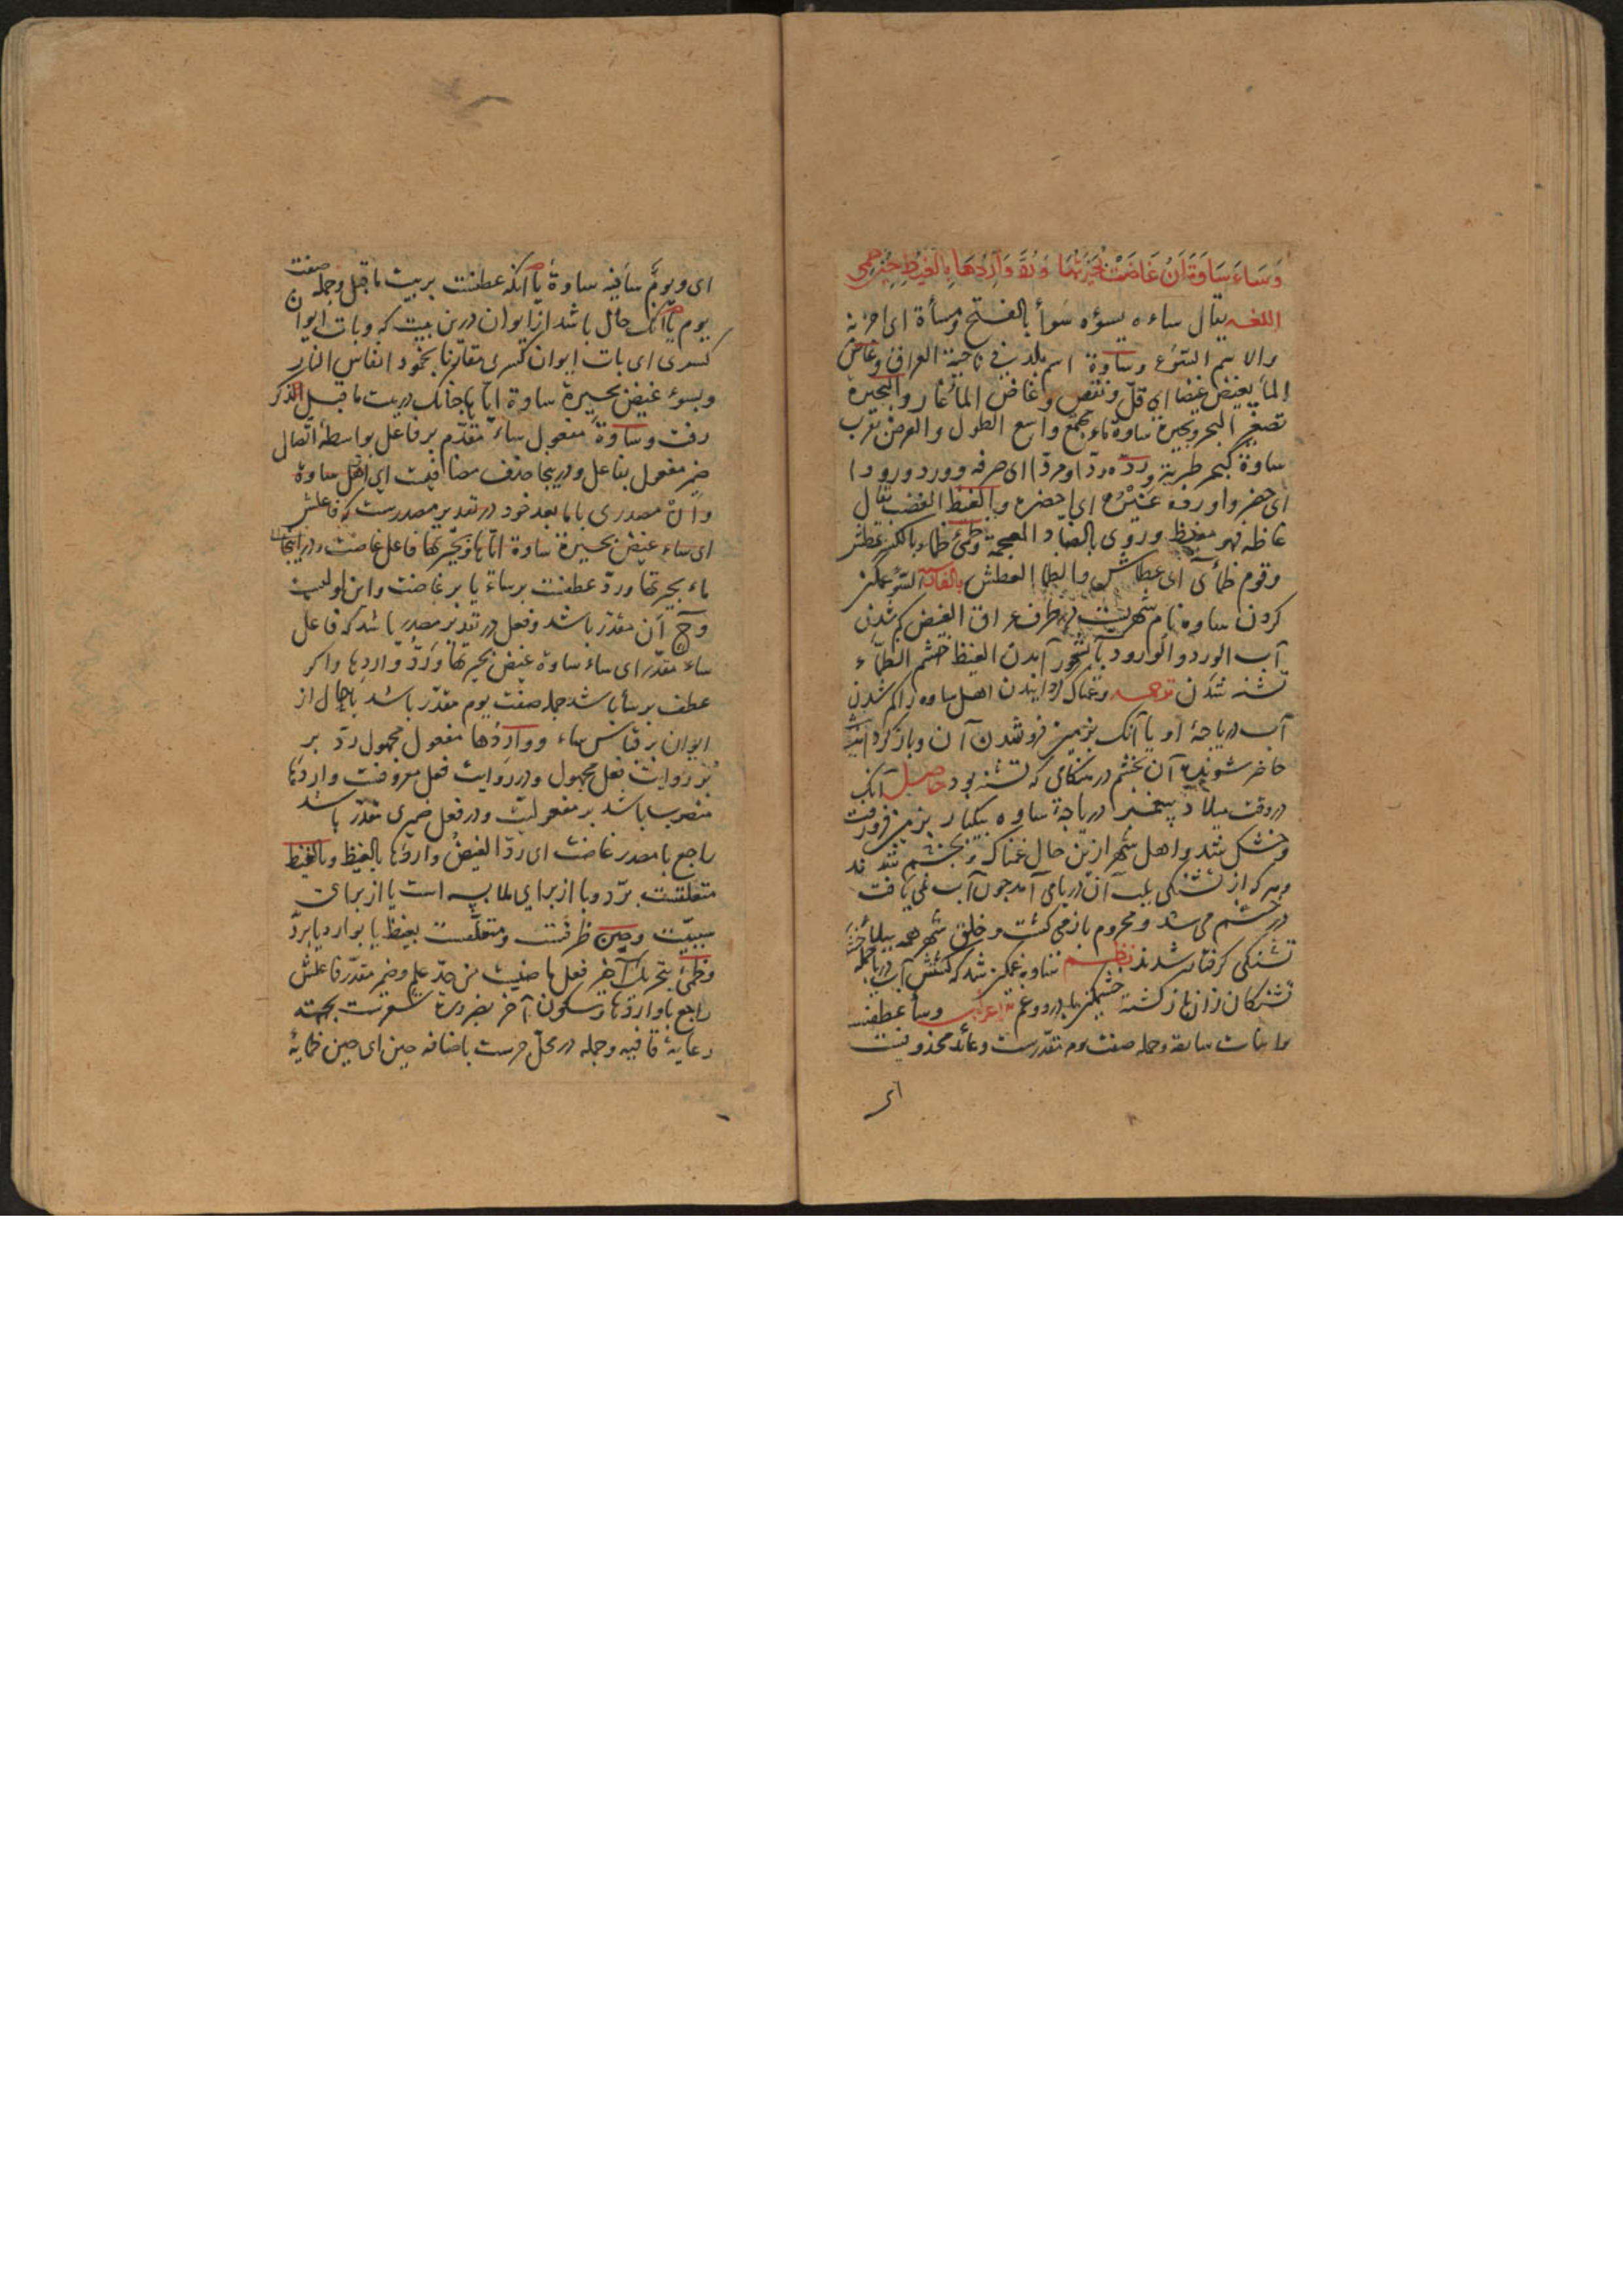 وَسَاءَ سَاوَةَ اَنْ غَاضَتْ بُحَيْرَتُهَا وَرُدَّ وَارِدُهَا بِالْغَيْظِ حِيْنَ ظَمِى
اللغه یقال ساءه یسؤه سَوأ بالفتح ومسأة ای احزنه
والاسم السّوء وساوة اسم بلد فی ناحیة العراق وغاض
الماء یغیض غیضا ای قلّ ونقص وغاض الماء غار والبحیرة
تصغیر البحر وبحیرة ساوة ماء مجتمع واسع الطول والعرض بقرب
ساوة کبحر طبریة وردّه ردّا ومردّا ای صرفه وورد ورودا
ای حضر واورده غیره ای احضره والغیظ الغضب یقال
غاظه فهو مغیظ وروی بالضاد المعجمة وظمئ ظماء بالکسر عطش
وقوم ظمأى ای عطاش والظما العطش بالفارسیة السّوء غمکین
کردن ساوه نام شهریست در طرف عراق الغیض کم شدن
آب الورد والورود بآبشخور آمدن الغیظ خشم الظمآء
تشنه شدن ترجمه وغمناک گردانیدن اهل ساوه را کم شدن
آب دریاجهٔ او یا آنک بزمین فرو شدن آن وبازگردانیدن
حاضر شونده آن بخشم در هنکامی که تشنه بود حاصل آنک
در وقت میلاد پیغمبر دریاجهٔ ساوه بیکبار بزمین فرو رفت
وخشک شد واهل شهر ازین حال غمناک وبخشم شدند
وهرکه از تشنکی بلب آن دریا می آمد جون آب نمی یافت
در خشم می شد ومحروم باز می کشت وخلق شهر همه ببلاء
تشنکی کرفتار شدند نظم ساوه غمکین شد که کشتش آب دریاجه
تشنکان زان باز کشته خشمکین با درد وغم اعراب وسأ عطفست
بر ابیات سابقه وجمله صفت یوم مقدّرست وعائد محذوفست
ای
ای ویومٌ سأ فیه ساوة یا آنکه عطفست بر بیت ماقبل وجمله صفت
یوم یا آنک حال باشد از ایوان درین بیت که وبات ایوان
کسری ای بات ایوان کسری مقارنا بخمود انفاس النار
وبسوء غیض بحیرة ساوة ایّاها جنانک در بیت ماقبل الذکر
رفت وساوةَ مفعول ساء مقدّم بر فاعل بواسطهٔ اتّصال
ضمیر مفعول بفاعل ودرینجا حذف مضافیست ای اهل ساوة
وانْ مصدری با مابعد خود در تقدیر مصدرست که فاعلش
ای ساء غیض بحیرة ساوة ایّاها وبحیرتها فاعل غاضت ودر اینجا
ماء بحیرتها وردّ عطفست بر ساء یا بر غاضت واین اولیست
وح اَن مقدّر باشد وفعل در تقدیر مصدر باشد که فاعل
ساء مقدّر ای ساء ساوة غیض بحیرتها ورَدُّ واردها واکر
عطف بر سأ باشد جمله صفت یوم مقدّر باشد یا حال از
ایوان بر قیاس ساء وواردُها مفعول مجهول ردّ بر
بر روایت فعل مجهول ودر روایت فعل معروفست واردَها
منصوب باشد بر مفعولیّت ودر فعل ضمیری مقدّر باشد
راجع با مصدر غاضت ای ردّ الغیضُ واردَها بالغیظ وبالغیظ
متعلّقست بردّ وبا از برای ملابسه است یا از برای
سببیّت وحین ظرفست ومتعلّقست بغیظ یا بوارد یا بردّ
وظمئ بتحریک آخر فعل ماضیست من حدّ علم وضمیر مقدّر فاعلش
راجع با واردها وسکون آخر بضرورة شعرست بجهت
رعایهٔ قافیه وجمله در محلّ جرست باضافه حین ای حین ظمایهٔ